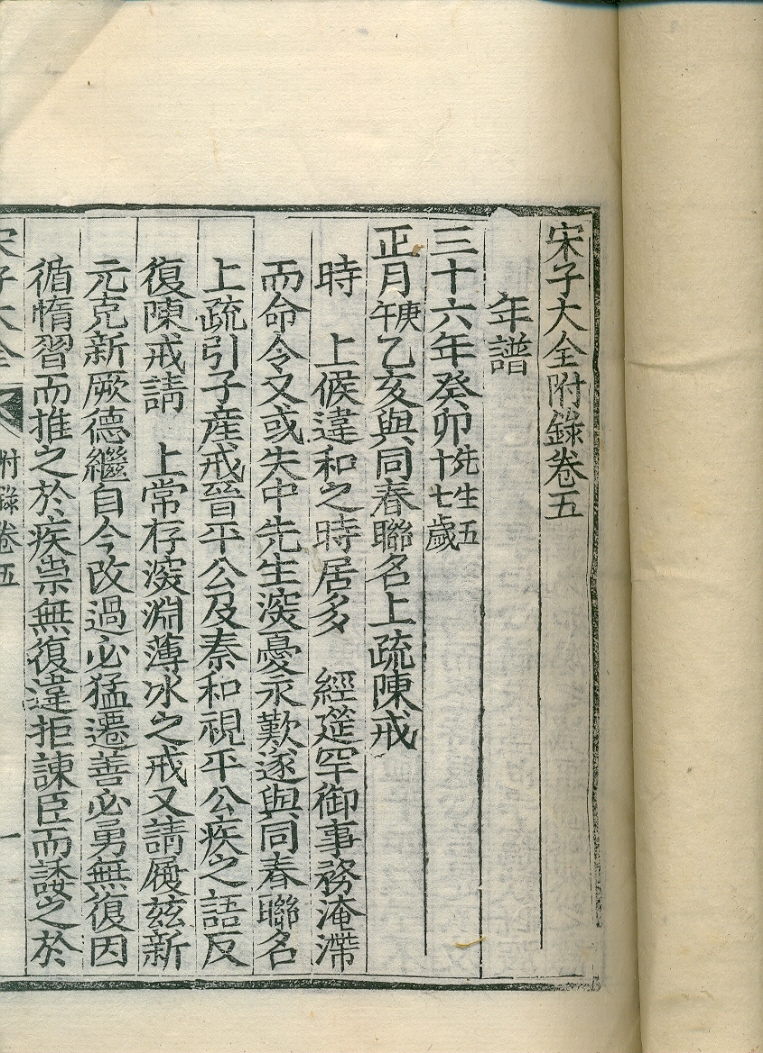 宋子大全附錄卷五
年譜
三十六年癸卯先生五十七歲
正月庚午乙亥與同春聯名上疏陳戒
時 上候違和之時居多 經筵罕御事務淹滯
而命令又或失中先生深憂永歎遂與同春聯名
上疏引子產戒晉平公及秦和視平公疾之語反
復陳戒請 上常存深淵薄冰之戒又請履茲新
元克新厥德繼自今改過必猛遷善必勇無復因
循惰習而推之於疾祟無復違拒諫臣而諉之於
宋子大全 附錄卷五 一